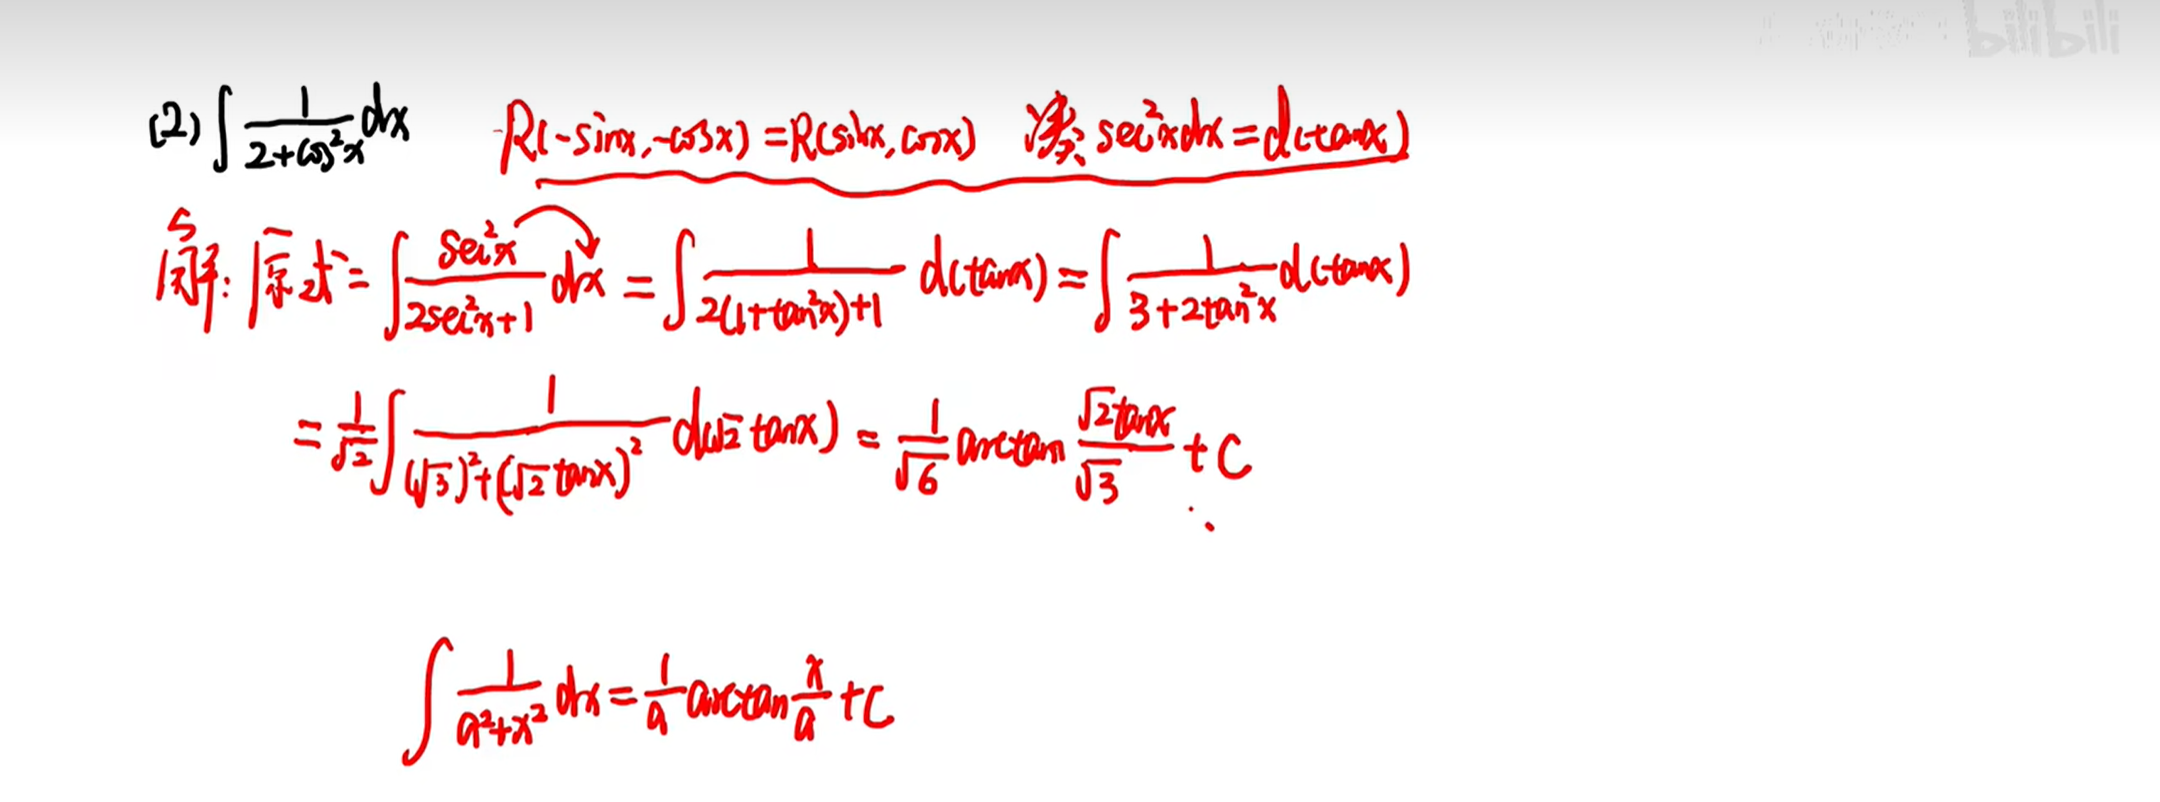 bilibili
(2) ∫ 1/(2+cos²x) dx R(-sinx,-cosx)=R(sinx,cosx) 凑 sec²xdx=d(tanx)
解: 原式= ∫ sec²x/(2sec²x+1) dx = ∫ 1/(2(1+tan²x)+1) d(tanx) = ∫ 1/(3+2tan²x) d(tanx)
= 1/√2 ∫ 1/((√3)²+(√2 tanx)²) d(√2 tanx) = 1/√6 arctan (√2tanx)/√3 + C
∫ 1/(a²+x²) dx = 1/a arctan x/a + C